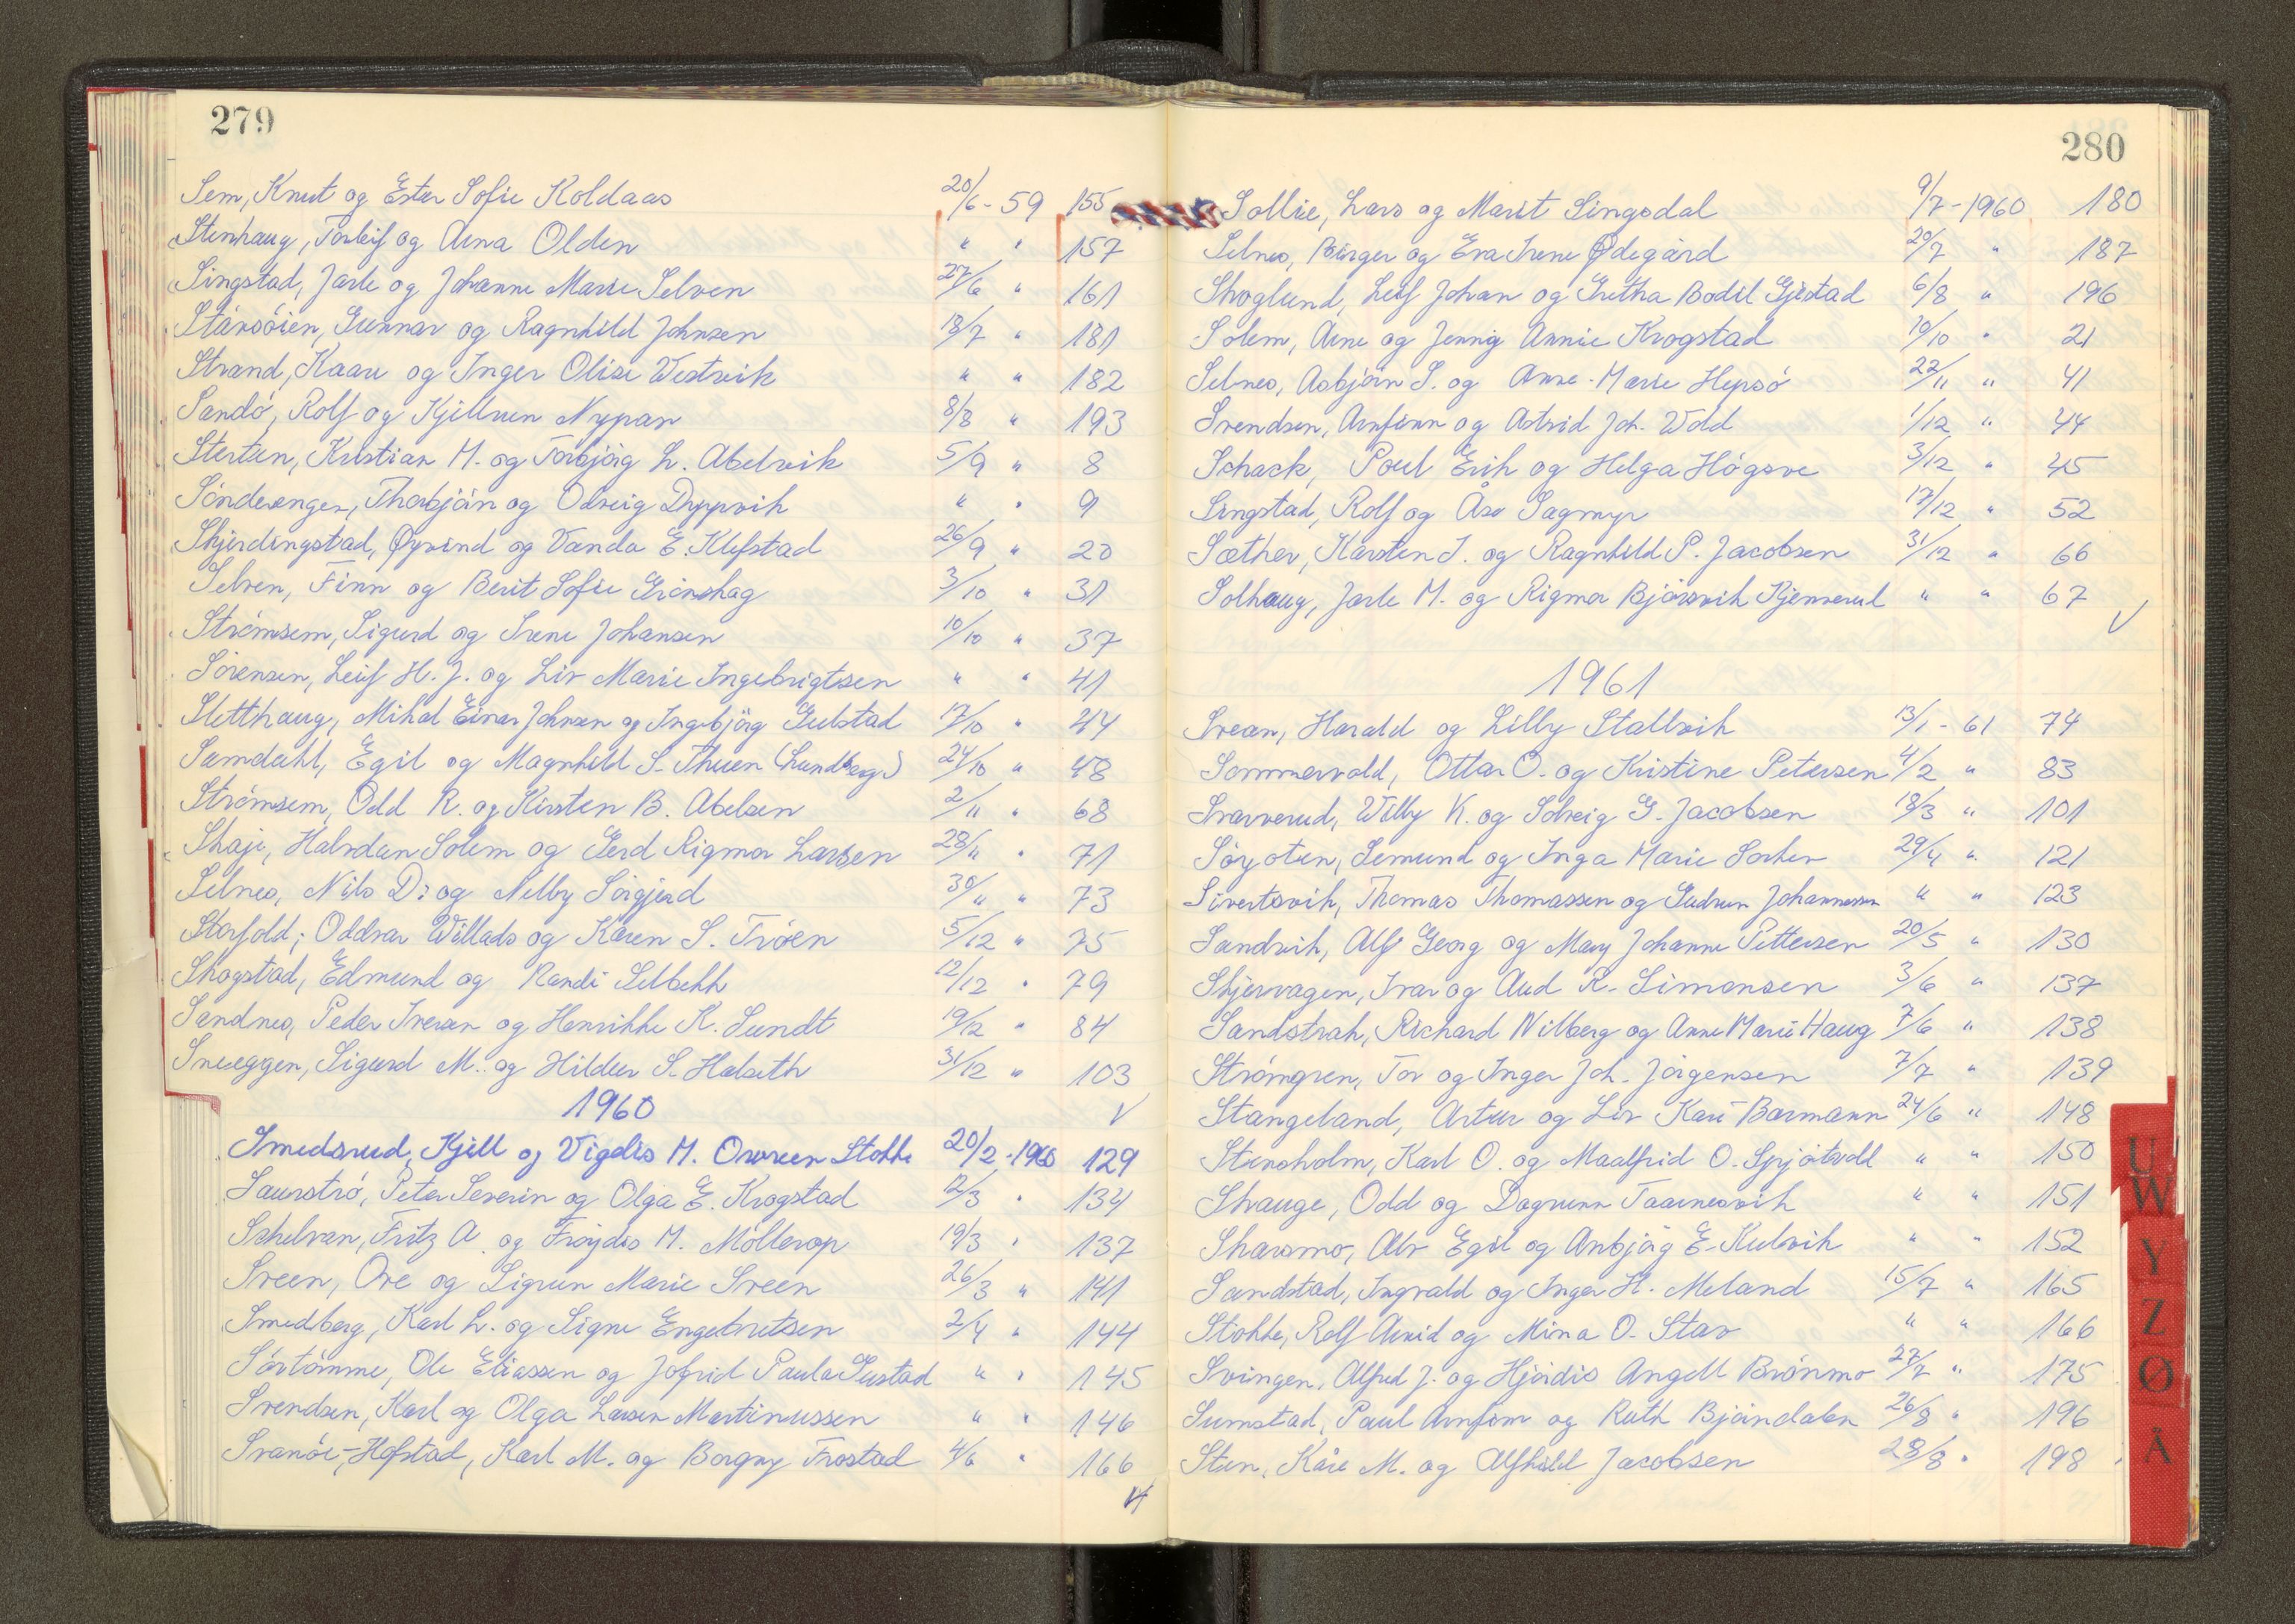 279
Sem, Knut og Ester Sofie Koldaas 20/6 - 59 155
Stenhaug, Torleif og Arna Olden " " 157
Singstad, Jarle og Johanne Marie Selven 27/6 " 161
Stavsöien, Gunnar og Ragnhild Johnsen 18/7 " 181
Strand, Kaare og Inger Olise Vestvik " " 182
Sandö, Rolf og Kjellrun Nypan 8/8 " 193
Sterten, Kristian M. og Torbjörg L. Abelvik 5/9 " 8
Sönderenger, Thorbjörn og Solveig Dyppvik " " 9
Skjerdingstad, Øyvind og Vanda E. Klefstad 26/9 " 20
Selven, Finn og Berit Sofie Grönshag 3/10 " 31
Strömsem, Sigurd og Irene Johansen 10/10 " 37
Sörensen, Leif H. J. og Liv Marie Ingebrigtsen " " 41
Sletthaug, Mikal Einar Johnsen og Ingebjörg Gulstad 17/10 " 44
Samdahl, Egil og Magnhild S. Thuen (Lundberg) 24/10 " 48
Strömsem, Odd R. og Kirsten B. Abelsen 2/11 " 68
Skaje, Halvdan Solem og Gerd Rigmor Larsen 28/11 " 71
Selnes, Nils D. og Nelly Sörgjerd 30/11 " 73
Storfold, Oddvar Willads og Karen S. Tröen 5/12 " 75
Skogstad, Edmund og Randi Selbekk 12/12 " 79
Sandnes, Peder Iversen og Henrikke K. Sundt 19/12 " 84
Sneeggen, Sigurd M. og Hildur S. Halseth 31/12 " 103
1960 V
Smedsrud, Kjell og Vigdis M. Stokke 20/2 - 1960 129
Saurströ, Peter Severin og Olga E. Krogstad 2/3 " 134
Schelvan, Fritz A. og Fröydis M. Möllerop 19/3 " 137
Sveen, Ove og Sigrun Marie Sveen 26/3 " 141
Smedberg, Karl L. og Signe Engebretsen 2/4 " 144
Sörtömme, Ole Eliassen og Jofrid Paula Sustad " " 145
Svendsen, Karl og Olga Larsen Martinussen " " 146
Svanöe-Hofstad, Karl M. og Borgny Frostad 4/6 " 166
280
Sollie, Lars og Marit Singsdal 9/7 - 1960 180
Selnes, Birger og Eva Irene Ødegård 20/7 " 187
Skoglund, Leif Johan og Gretha Bodil Gjestad 6/8 " 196
Solem, Arne og Jenny Annie Krogstad 10/10 " 21
Selnes, Asbjörn S. og Anne-Marie Hepsö 22/11 " 41
Svendsen, Arnfinn og Astrid Joh. Wold 1/12 " 44
Schack, Poul Erik og Helga Högsve 3/12 " 45
Singstad, Rolf og Åse Sagmyr 17/12 " 52
Sæther, Karsten J. og Ragnhild P. Jacobsen 31/12 " 66
Solhaug, Jarle M. og Rigmor Björsvik Kjennerud " " 67
V
1961
Svean, Harald og Lilly Stallvik 13/1 - 61 74
Sommervold, Ottar O. og Kristine Petersen 4/2 " 83
Svarverud, Willy K. og Solveig G. Jacobsen 18/3 " 101
Söyoten, Semund og Inga Marie Sorken 29/4 " 121
Sivertsvik, Thomas Thomassen og Gudrun Johannessen " " 123
Sandvik, Alf Georg og Mary Johanne Pettersen 20/5 " 130
Skjervagen, Ivar og Aud R. Simonsen 3/6 " 137
Sandstrak, Richard Wilberg og Anne Marie Haug 7/6 " 138
Strömgren, Tor og Inger Joh. Jörgensen 7/7 " 139
Stangeland, Artur og Liv Kari Barmann 24/6 " 148
Stensholm, Karl O. og Maalfrid O. Spjötvoll " " 150
Skauge, Odd og Dagrunn Taarnesvik " " 151
Skarsmo, Alv Egil og Anbjörg E. Kulvik " " 152
Sandstad, Ingvald og Inger H. Meland 15/7 " 165
Stokke, Rolf Arvid og Mina O. Stav " " 166
Svingen, Alfred J. og Hjördis Angell Brönmo 27/7 " 175
Sumstad, Paul Arnfinn og Ruth Björndalen 26/8 " 196
Steen, Kåre M. og Alfhild Jacobsen 28/8 " 198
U
W
Y
Z
Ø
Å